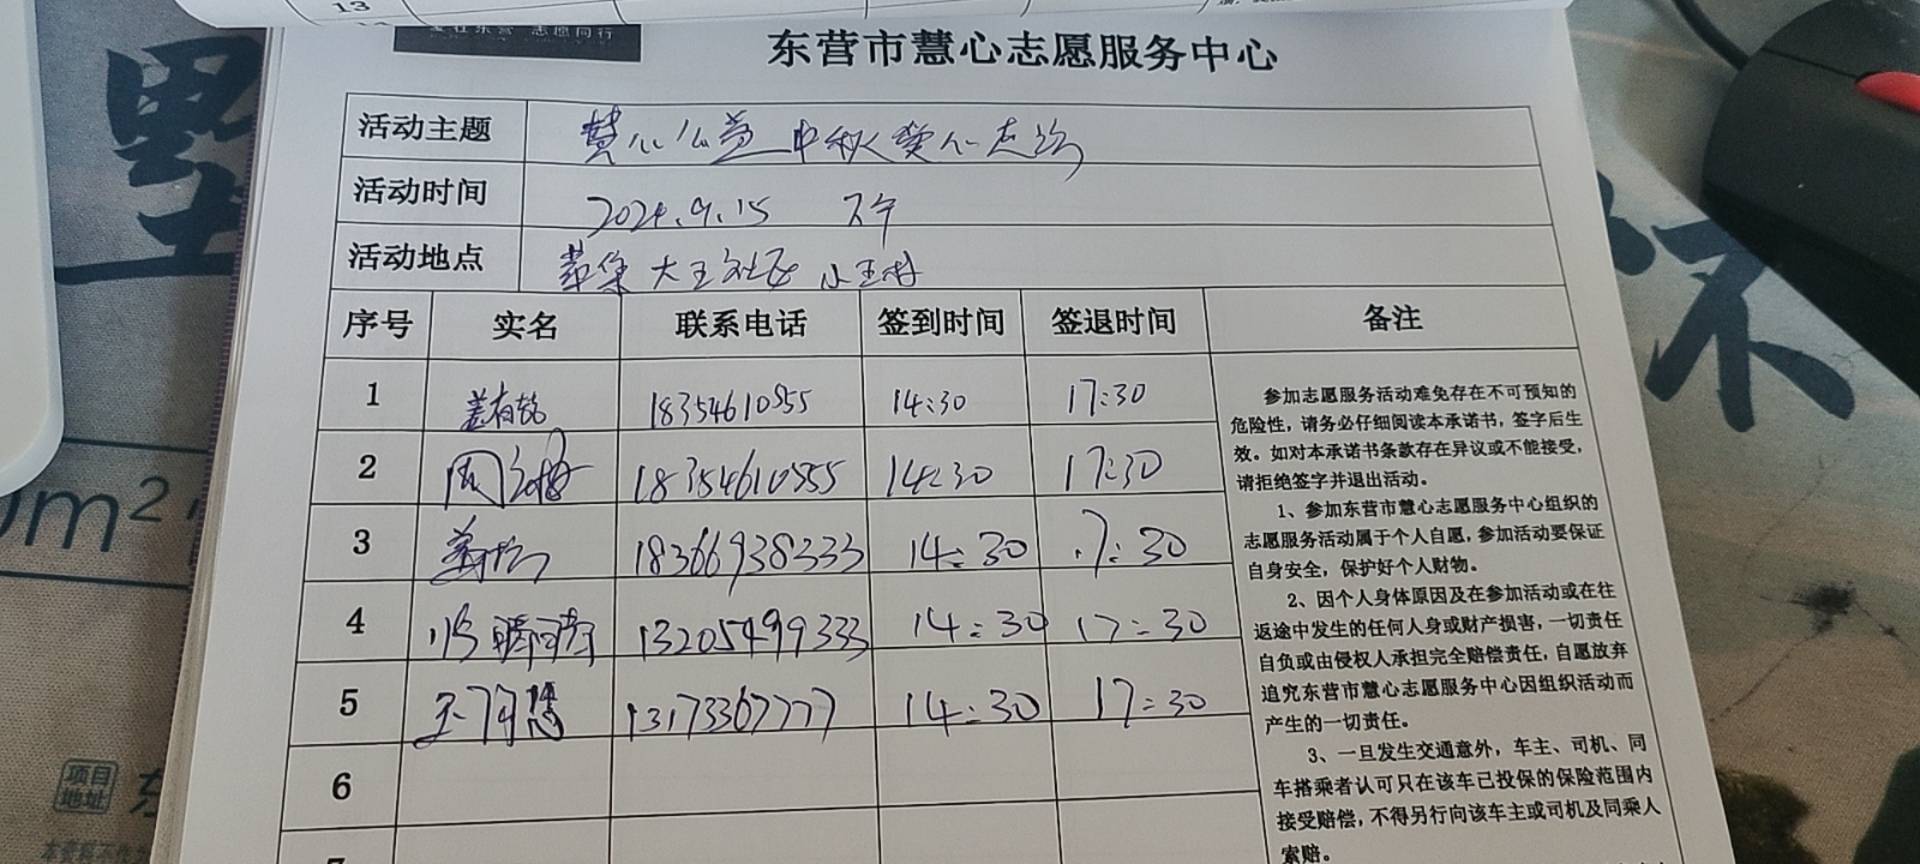 13
爱在东营 志愿同行
东营市慧心志愿服务中心
活动主题 慧心公益 中秋爱心走访
活动时间 2024.9.15 下午
活动地点 大王社区 小王村
序号 实名 联系电话 签到时间 签退时间 备注
1 18354610555 14:30 17:30
2 周 18354610555 14:30 17:30
3 18366938333 14:30 17:30
4 13205499333 14:30 17:30
5 王 13173367777 14:30 17:30
6
7
参加志愿服务活动难免存在不可预知的
危险性，请务必仔细阅读本承诺书，签字后生
效。如对本承诺书条款存在异议或不能接受，
请拒绝签字并退出活动。
1、参加东营市慧心志愿服务中心组织的
志愿服务活动属于个人自愿，参加活动要保证
自身安全，保护好个人财物。
2、因个人身体原因及在参加活动或在往
返途中发生的任何人身或财产损害，一切责任
自负或由侵权人承担完全赔偿责任，自愿放弃
追究东营市慧心志愿服务中心因组织活动而
产生的一切责任。
3、一旦发生交通意外，车主、司机、同
车搭乘者认可只在该车已投保的保险范围内
接受赔偿，不得另行向该车主或司机及同乘人
索赔。
墅
怀
m²
项目
地址
东